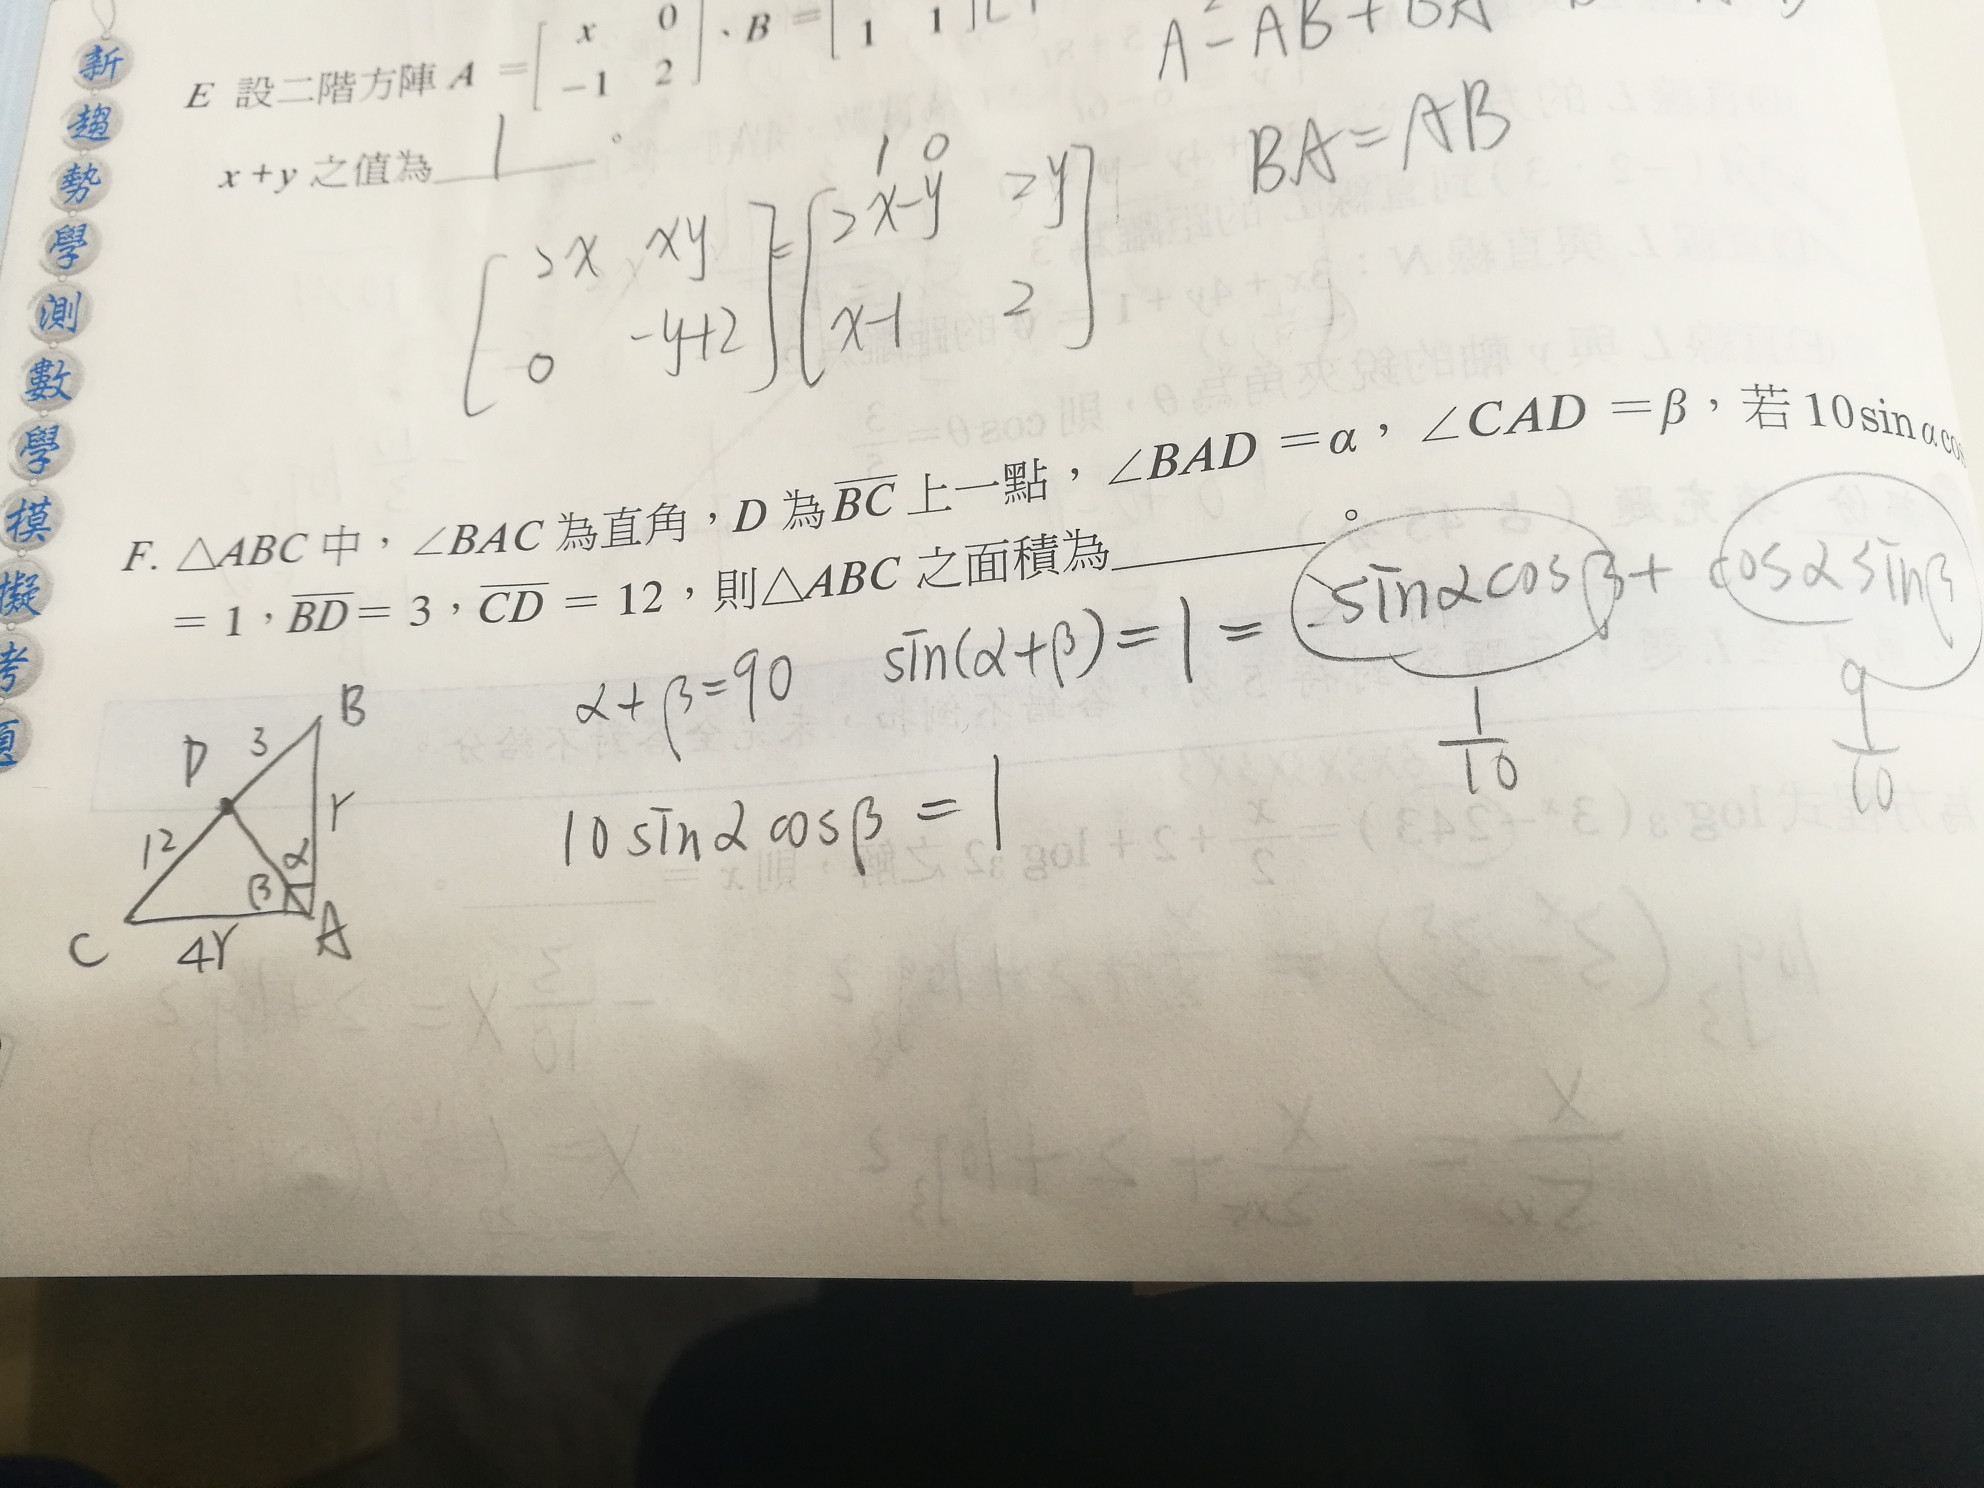 新
趨
勢
學
測
數
學
模
擬
考
題
E 設二階方陣 A = [ x 0 -1 2 ]、B = [ 1 1 ]
x+y 之值為 1 。
BA = AB
[ 2x xy 0 -y+2 ] = [ 2x-y 2y x-1 2 ]
1 0
F. △ABC 中，∠BAC 為直角，D 為 BC 上一點，∠BAD = α，∠CAD = β，若 10 sin α cos
= 1，BD = 3，CD = 12，則△ABC 之面積為________。
α+β=90 sin(α+β)=1= sinαcosβ + cosαsinβ
1/10 9/10
10 sinαcosβ = 1
B
D 3
12 r
α
β
C 4r A